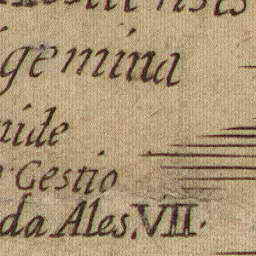 igemina
nide
Gestio
da Ales. VII.